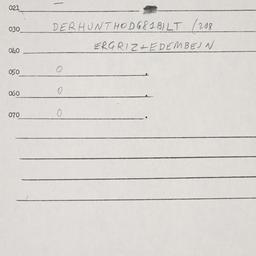 021
030 DERHUNTHODG81BILT /208
040 ERGRIZ+EDEMBEIN
050 0
060 0
070 0